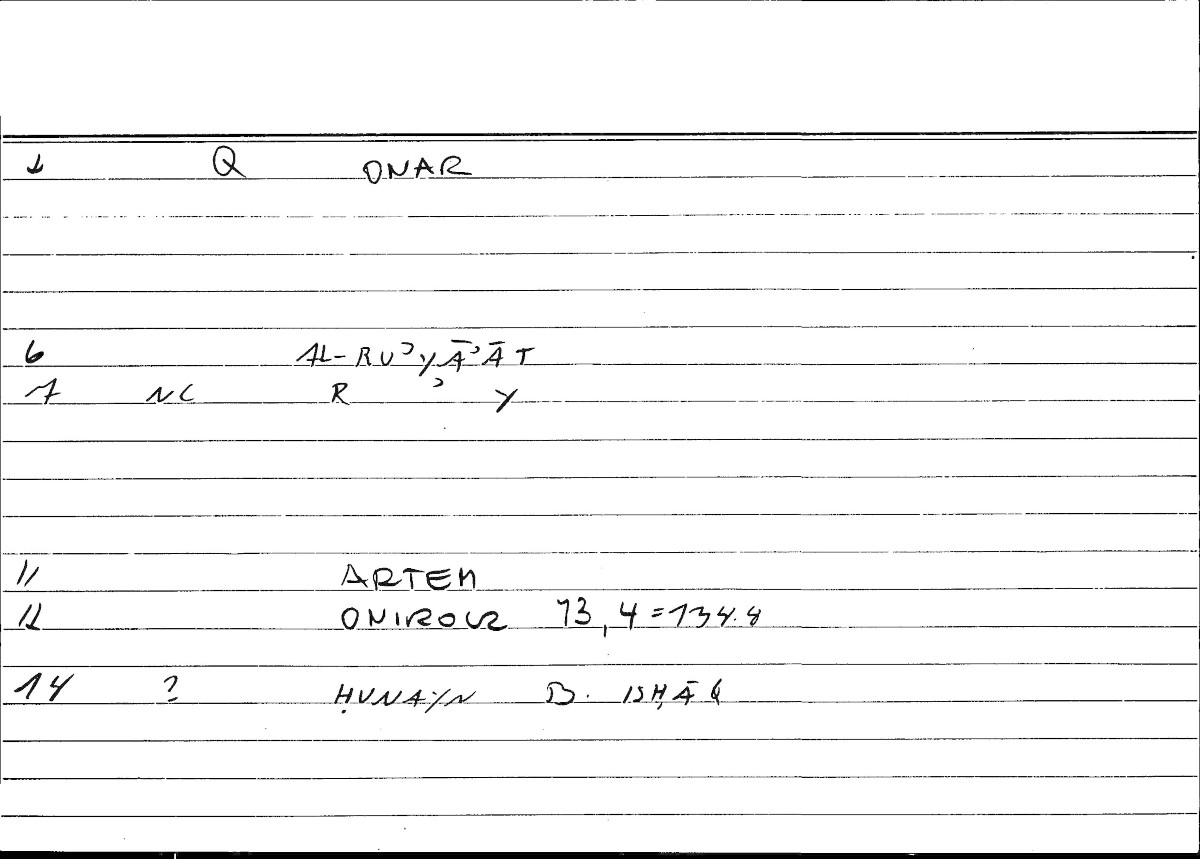 1 Q ONAR
6 AL-RUʾYĀʾĀT
7 NC R ʾ Y
11 ARTEM
12 ONIROCR 13,4=134.8
14 ? ḤUNAYN B. ISḤĀQ